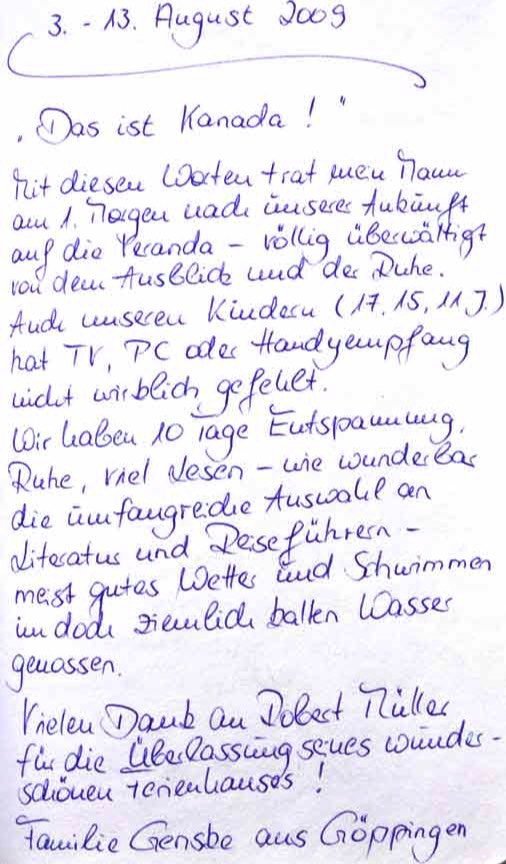 3. - 13. August 2009
„Das ist Kanada!"
Mit diesen Worten trat mein Mann
am 1. Morgen nach unserer Ankunft
auf die Veranda – völlig überwältigt
von dem Ausblick und der Ruhe.
Auch unseren Kindern (17, 15, 11 J.)
hat TV, PC oder Handyempfang
nicht wirklich gefehlt.
Wir haben 10 Tage Entspannung,
Ruhe, viel Lesen – wie wunderbar
die umfangreiche Auswahl an
Literatur und Reiseführern –
meist gutes Wetter und Schwimmen
im doch ziemlich kalten Wasser
genossen.
Vielen Dank an Robert Müller
für die Überlassung seines wunder-
schönen Ferienhauses!
Familie Genske aus Göppingen